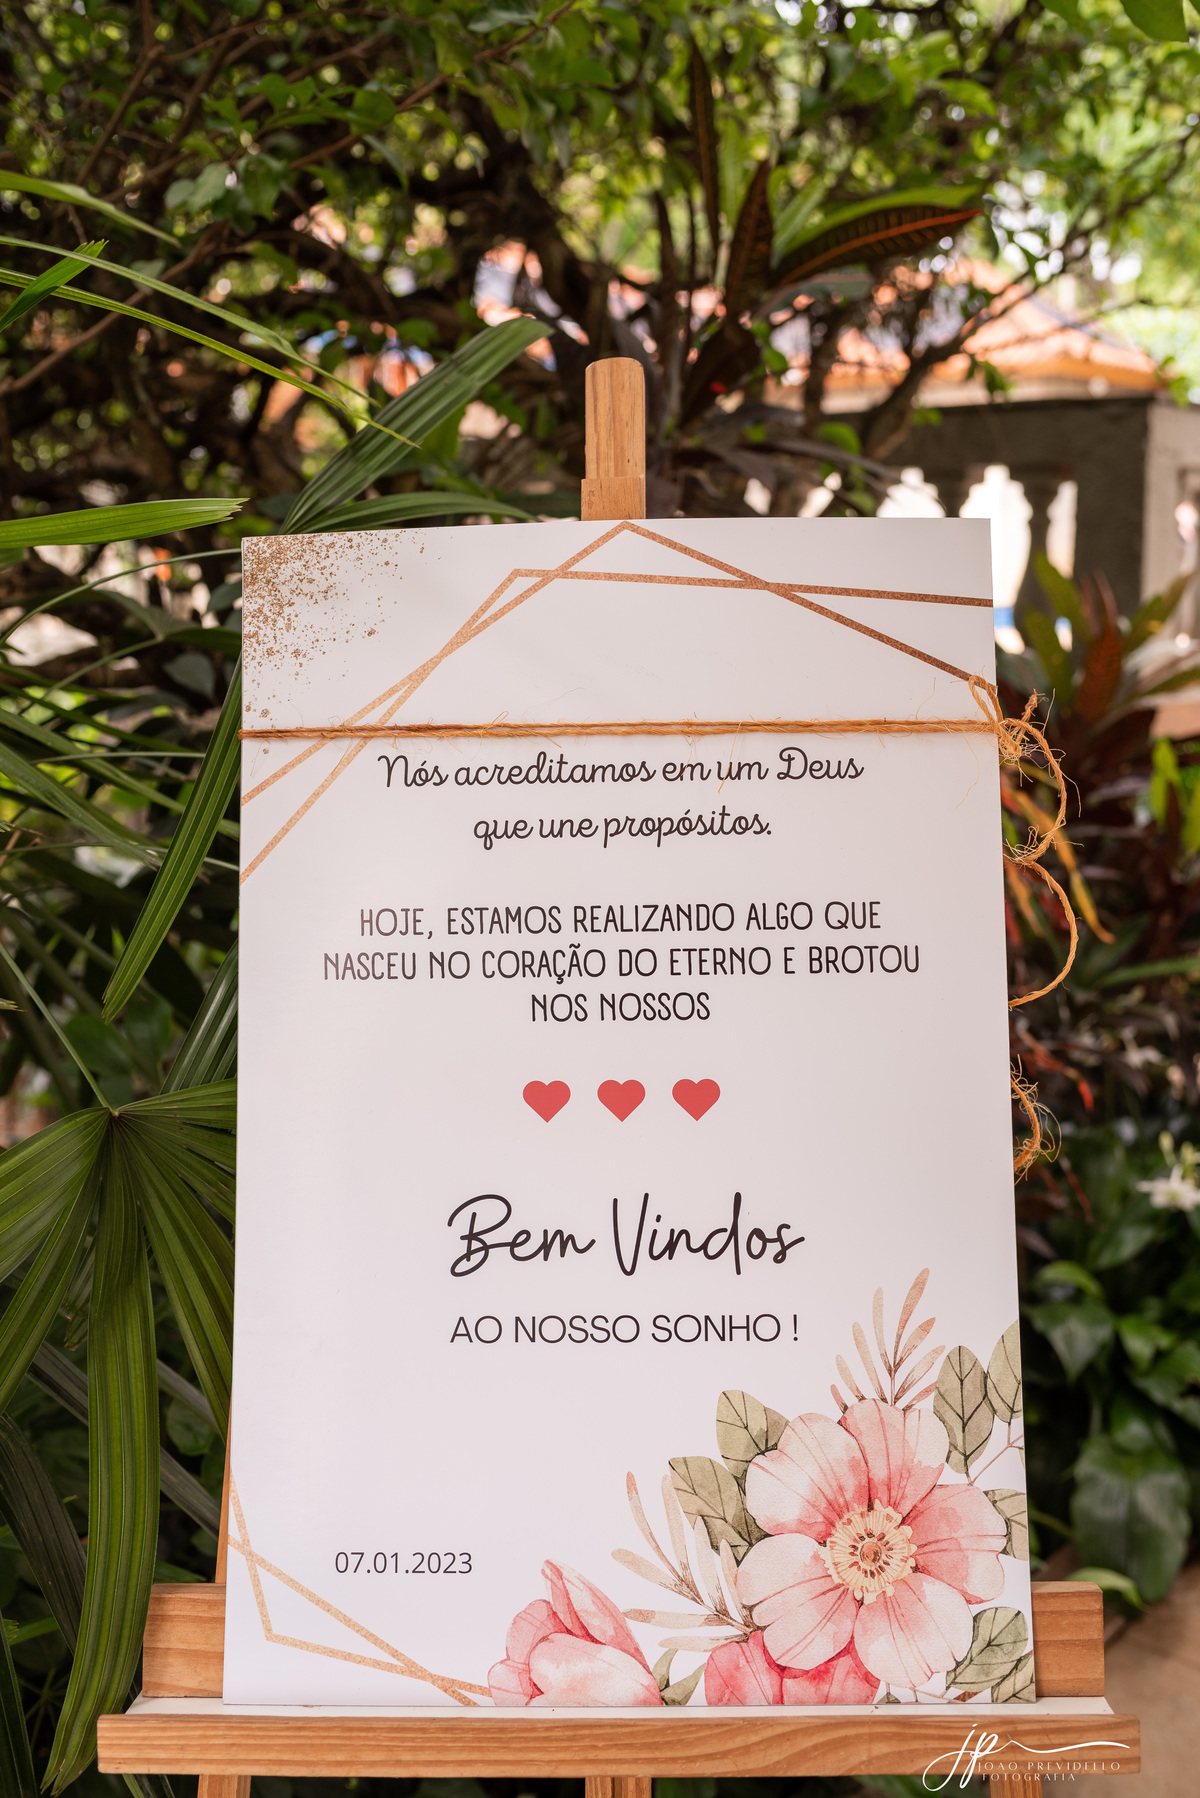 Nós acreditamos em um Deus
que une propósitos.
HOJE, ESTAMOS REALIZANDO ALGO QUE
NASCEU NO CORAÇÃO DO ETERNO E BROTOU
NOS NOSSOS
Bem Vindos
AO NOSSO SONHO !
07.01.2023
jp
JOÃO PREVIDELLO
FOTOGRAFIA